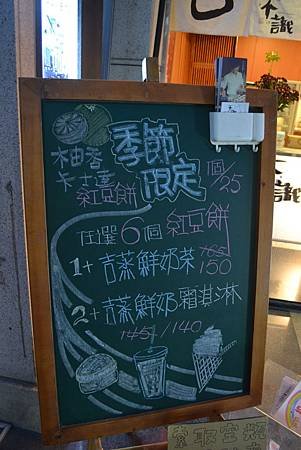 季節
限定
柚香
卡士達
紅豆餅
個/25
任選6個紅豆餅
1+吉蒸鮮奶茶 165 150
2+吉蒸鮮奶霜淇淋
145/140
索取空瓶